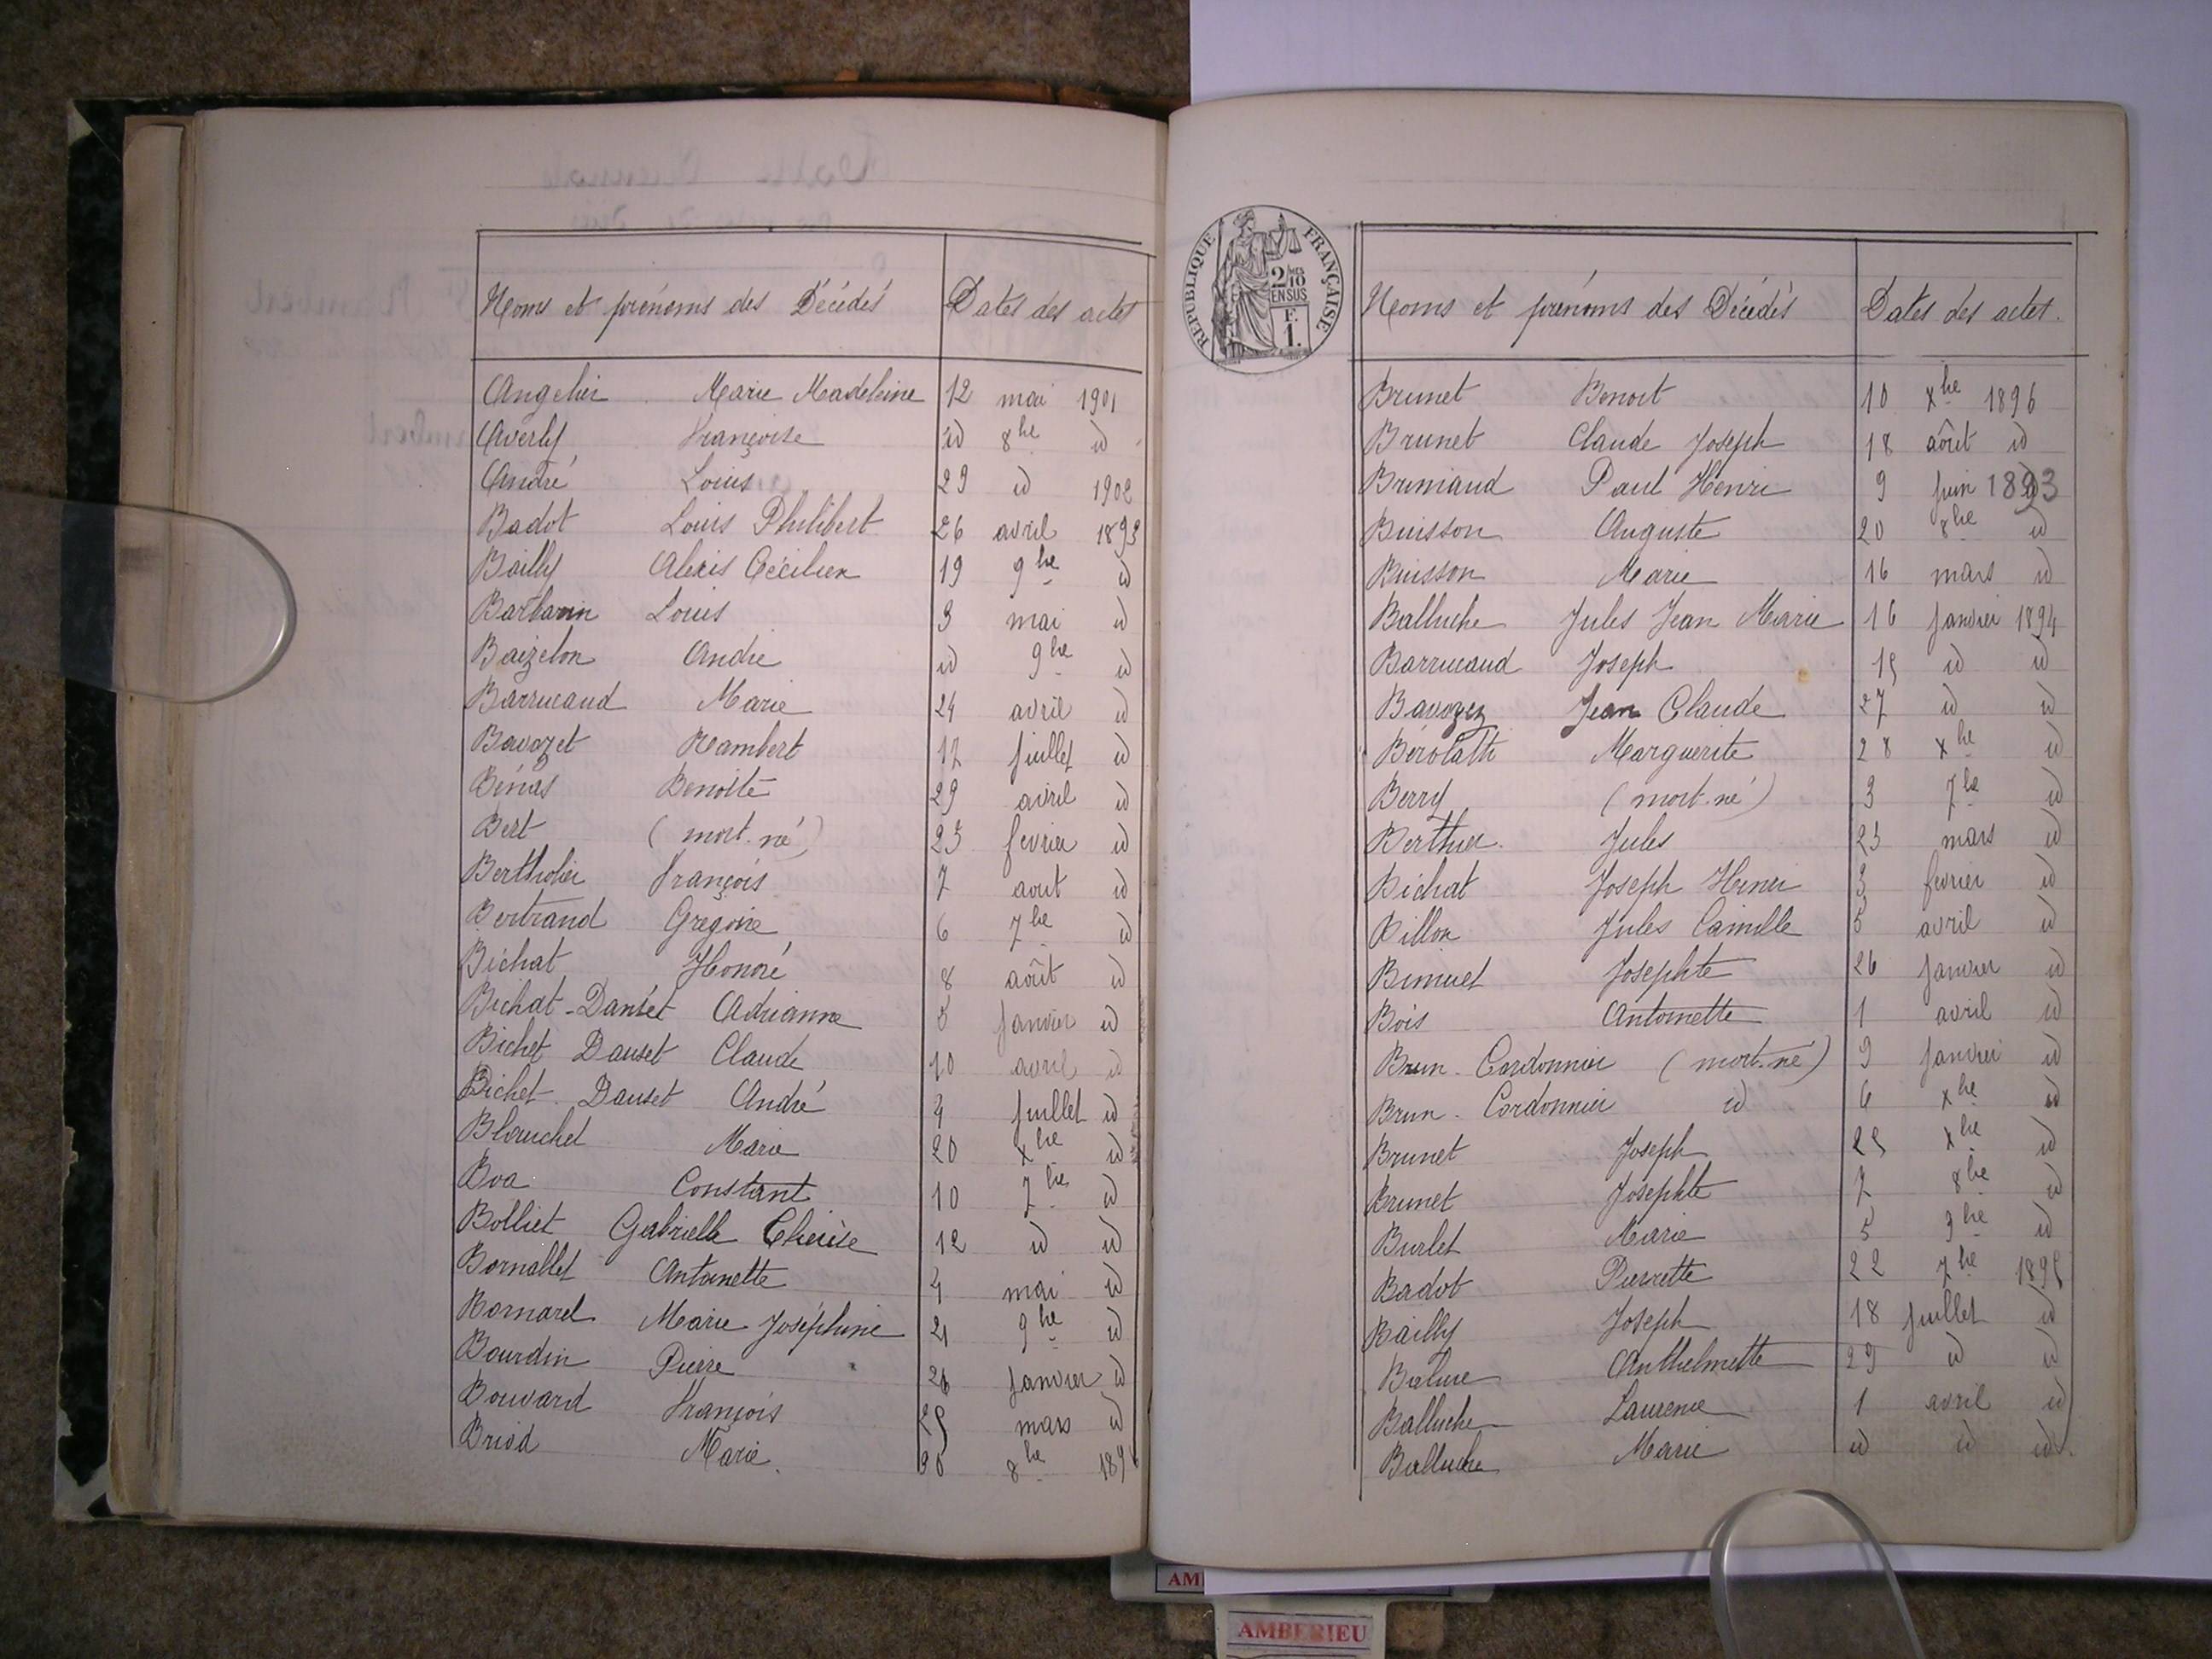 Noms et prénoms des Décédés Dates des actes
Angelier Marie Madeleine 12 mai 1901
Averly Françoise id 8bre id
André Louis 29 id 1902
Badot Louis Philibert 26 avril 1893
Bailly Alexis Cécilien 19 9bre id
Barbarin Louis 3 mai id
Baizelon André id 9bre id
Barrucand Marie 24 avril id
Bavozet Rambert 17 juillet id
Bénas Benoîte 29 avril id
Bert (mort-né) 23 fevrier id
Bertholier François 7 aout id
Bertrand Gregoire 6 7bre id
Bichat Honoré 8 août id
Bichat-Danset Adrianne 5 janvier id
Bichet Danset Claude 10 avril id
Bichet-Danset André 4 juillet id
Blanchet Marie 20 xbre id
Boa Constant 10 7bre id
Bolliet Gabrielle Thérèse 12 id id
Bornallet Antoinette 4 mai id
Bornarel Marie Joséphine 21 9bre id
Bourdin Pierre 26 janvier id
Bouvard François 25 mars id
Briod Marie 30 8bre 189
REPUBLIQUE FRANÇAISE
2/10 MES
EN SUS
F.
1.
Noms et prénoms des Décédés Dates des actes.
Brunet Benoit 10 xbre 1896
Brunet Claude Joseph 18 août id
Bruniaud Paul Henri 9 juin 1893
Buisson Auguste 20 8bre id
Buisson Marie 16 mars id
Balluche Jules Jean Marie 16 janvier 1894
Barrucand Joseph 15 id id
Bavozez Jean Claude 27 id id
Bérolatti Marguerite 28 xbre id
Berry (mort-né) 3 7bre id
Berthier Jules 23 mars id
Bichat Joseph Henri 3 fevrier id
Billon Jules Camille 5 avril id
Bimuet Josephte 26 janvier id
Bois Antoinette 1 avril id
Brun-Cordonnier (mort-né) 9 janvier id
Brun-Cordonnier id 6 xbre id
Brunet Joseph 25 xbre id
Brunet Josephte 7 8bre id
Burlet Marie 5 9bre id
Badot Pierrette 22 7bre 1895
Bailly Joseph 18 juillet id
Balme Anthelmette 29 id id
Balluche Laurence 1 avril id
Balluche Marie id id id.
AMBERIEU